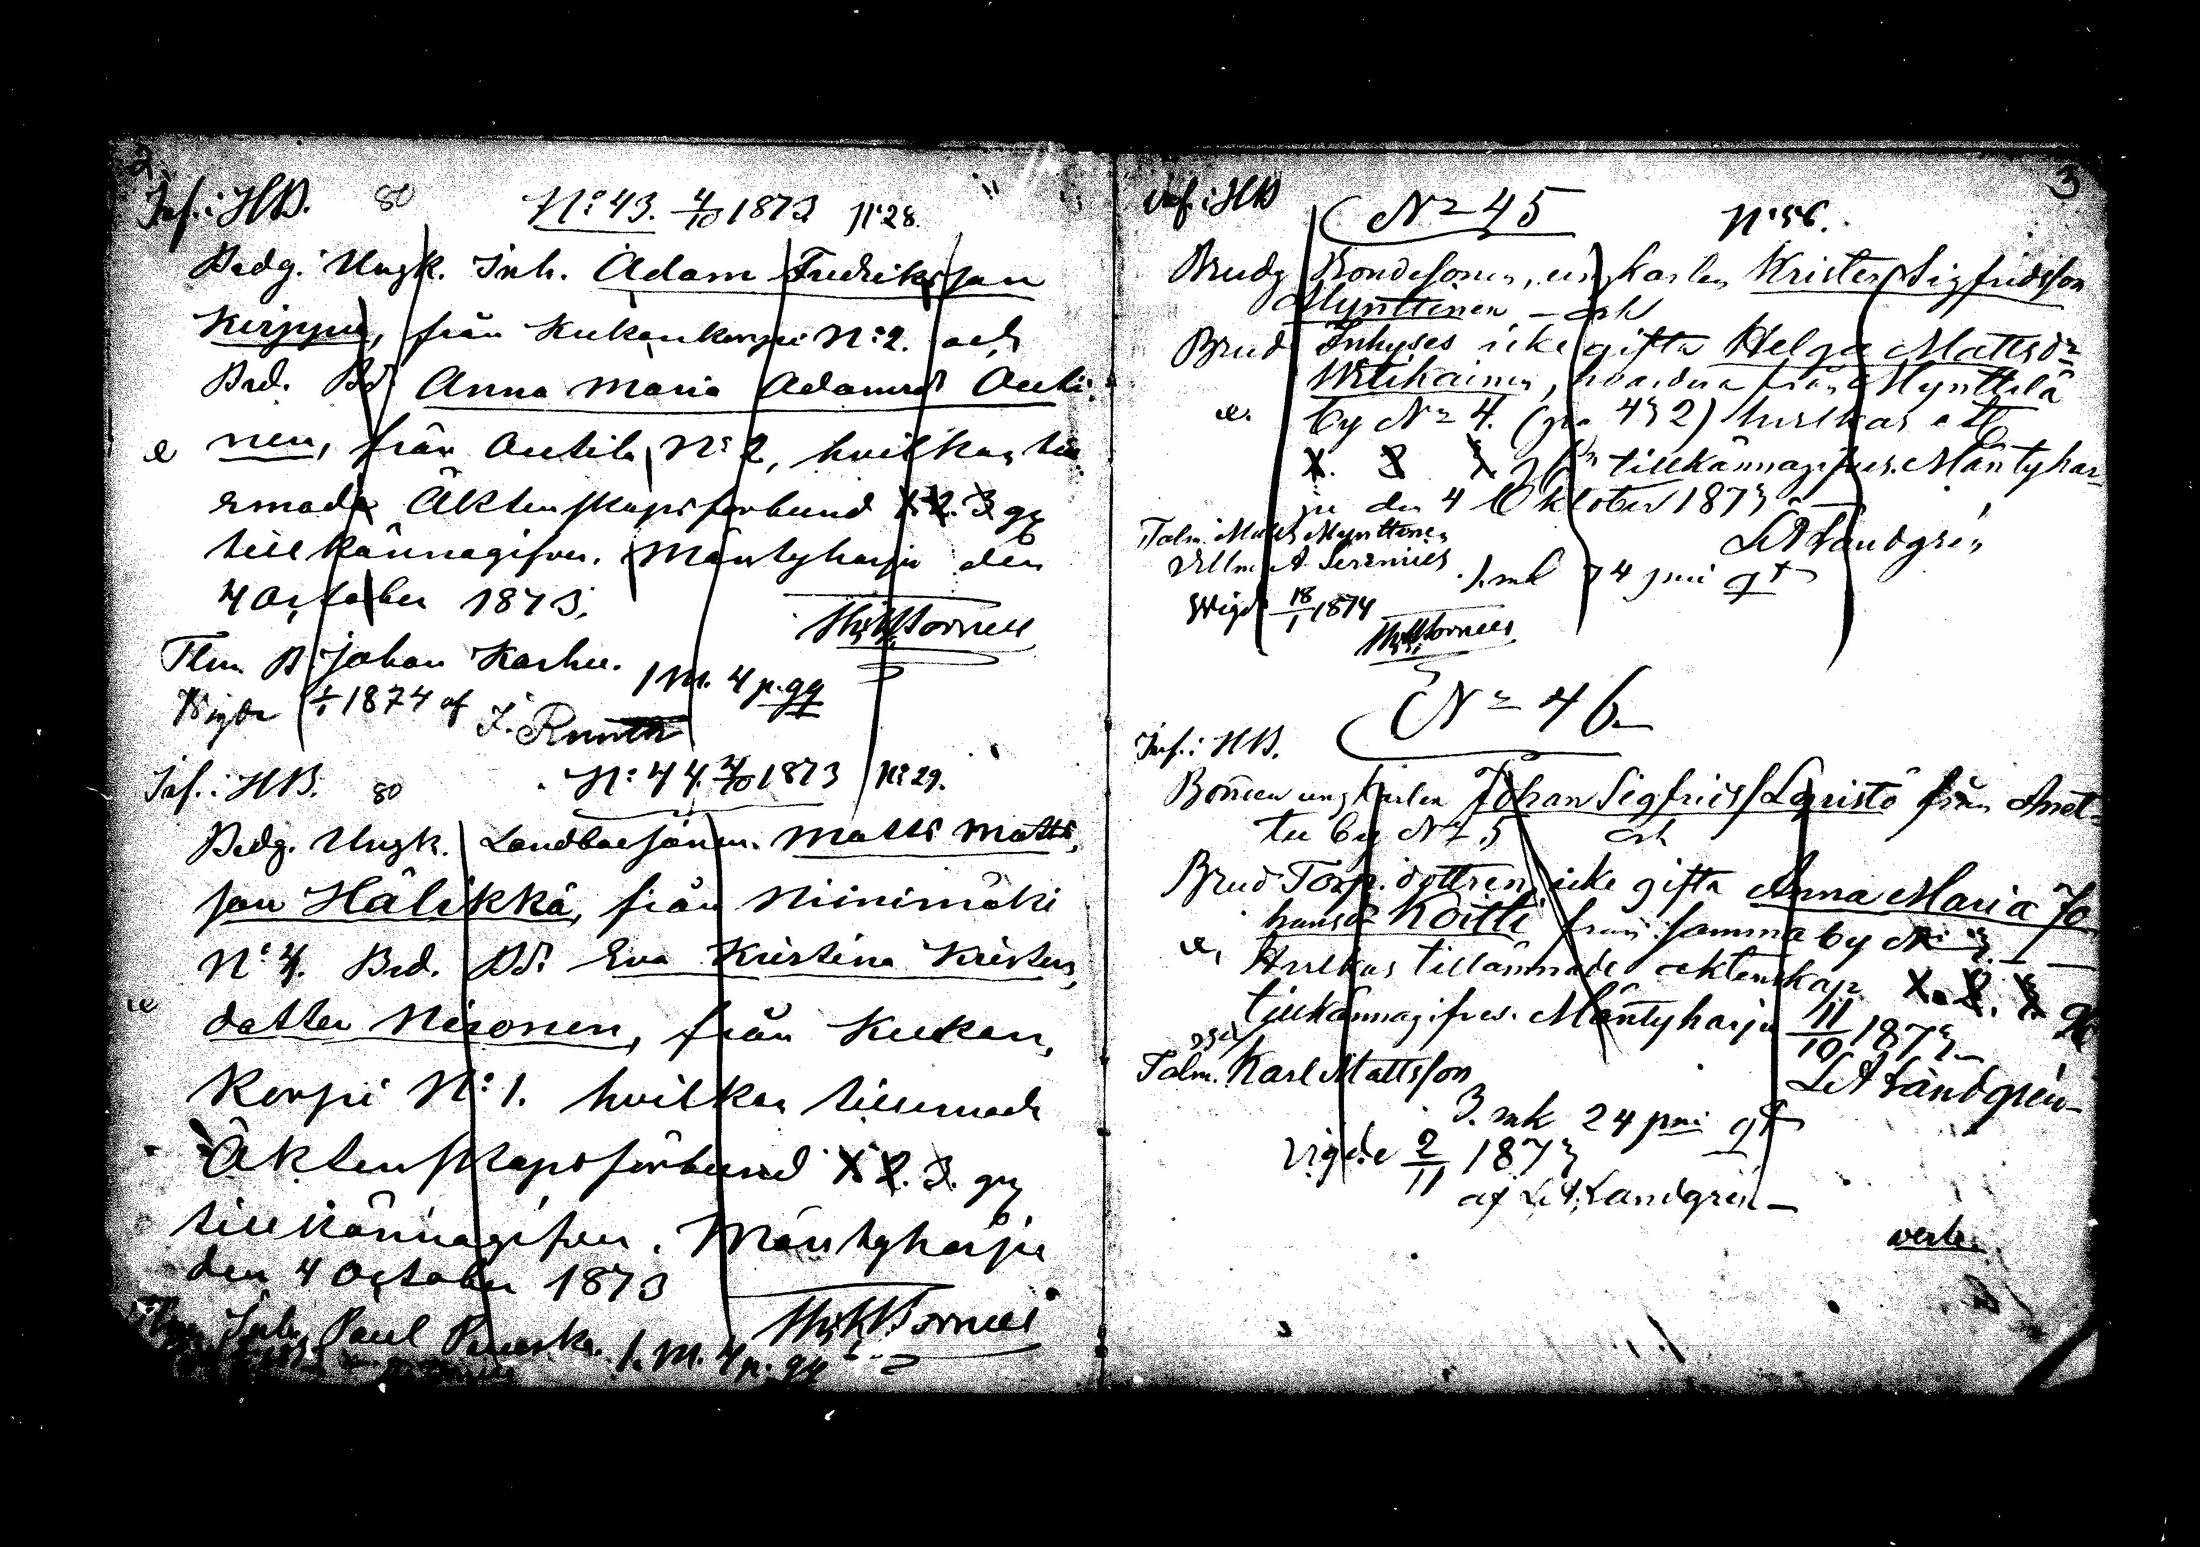 2
Inf. i HB. 80 N:o 43. 4/10 1873 N:o 28.
Brdg. Ungk. Inh. Adam Fredriksson
Kirjyne, från Kukonkorpi N:o 2. och
Brd. Bd. Anna Maria Adamsd. Outi
nen, från Outila N:o 2, hvilkas till
ernade Äktenskapsförbund 1. 2. 3 gg
tillkännagifves. Mäntyharju den
4 October 1873.
Tlm B. Johan Karhu. 1 M. 4 p. gg
Vigde 1/1 1874 af
Inf. i HB. 80 N:o 44. 4/10 1873 N:o 29.
Brdg. Ungk. Landboesonen. Matts Matts
son Hälikkä, från Niinimäki
N:o 4. Brd. Bd. Eva Kristina Kristers
dotter Nironen, från Kukon
Korpi N:o 1. hvilkas tillernade
Äktenskapsförbund 1. 2. 3. gg
tillkännagifves. Mäntyharju
den 4 October 1873
Inh. Paul 1. M. 4 p. gg
3
Inf. i HB
N:o 45 N:o 56.
Brudg Bondesonen, ungkarlen Krister Sigfridsson
Mynttinen, och
Brud Inhyses icke gifta Helga Mattsdr
Wilikainen, hvardera från Mynttilä
by N:o 4. hvilkas
1. 2 3 tillkännagifves. Mäntyhar
ju den 4 Oktober 1873
Talm. Matts Mynttinen
LA Sandgrén
1. mk 4 pni qt
Wigde 18/1 1874
N:o 46
Inf. i HB.
Bonden ungkarlen Johan Sigfridss Löpistö från
by N:o 5 och
Brud Torp. dottren icke gifta Anna Maria Jo
hansdr Koitti från samma by N:o
Hvilkas tillämnade äktenskap 1. 2. 3. gg
tillkännagifves. Mäntyharju 11/10 1873
Talm. Karl Mattsson
LA Sandgrén
3. mk 24 pni qt
Vigde 2/11 1873
af LA. Sandgrén